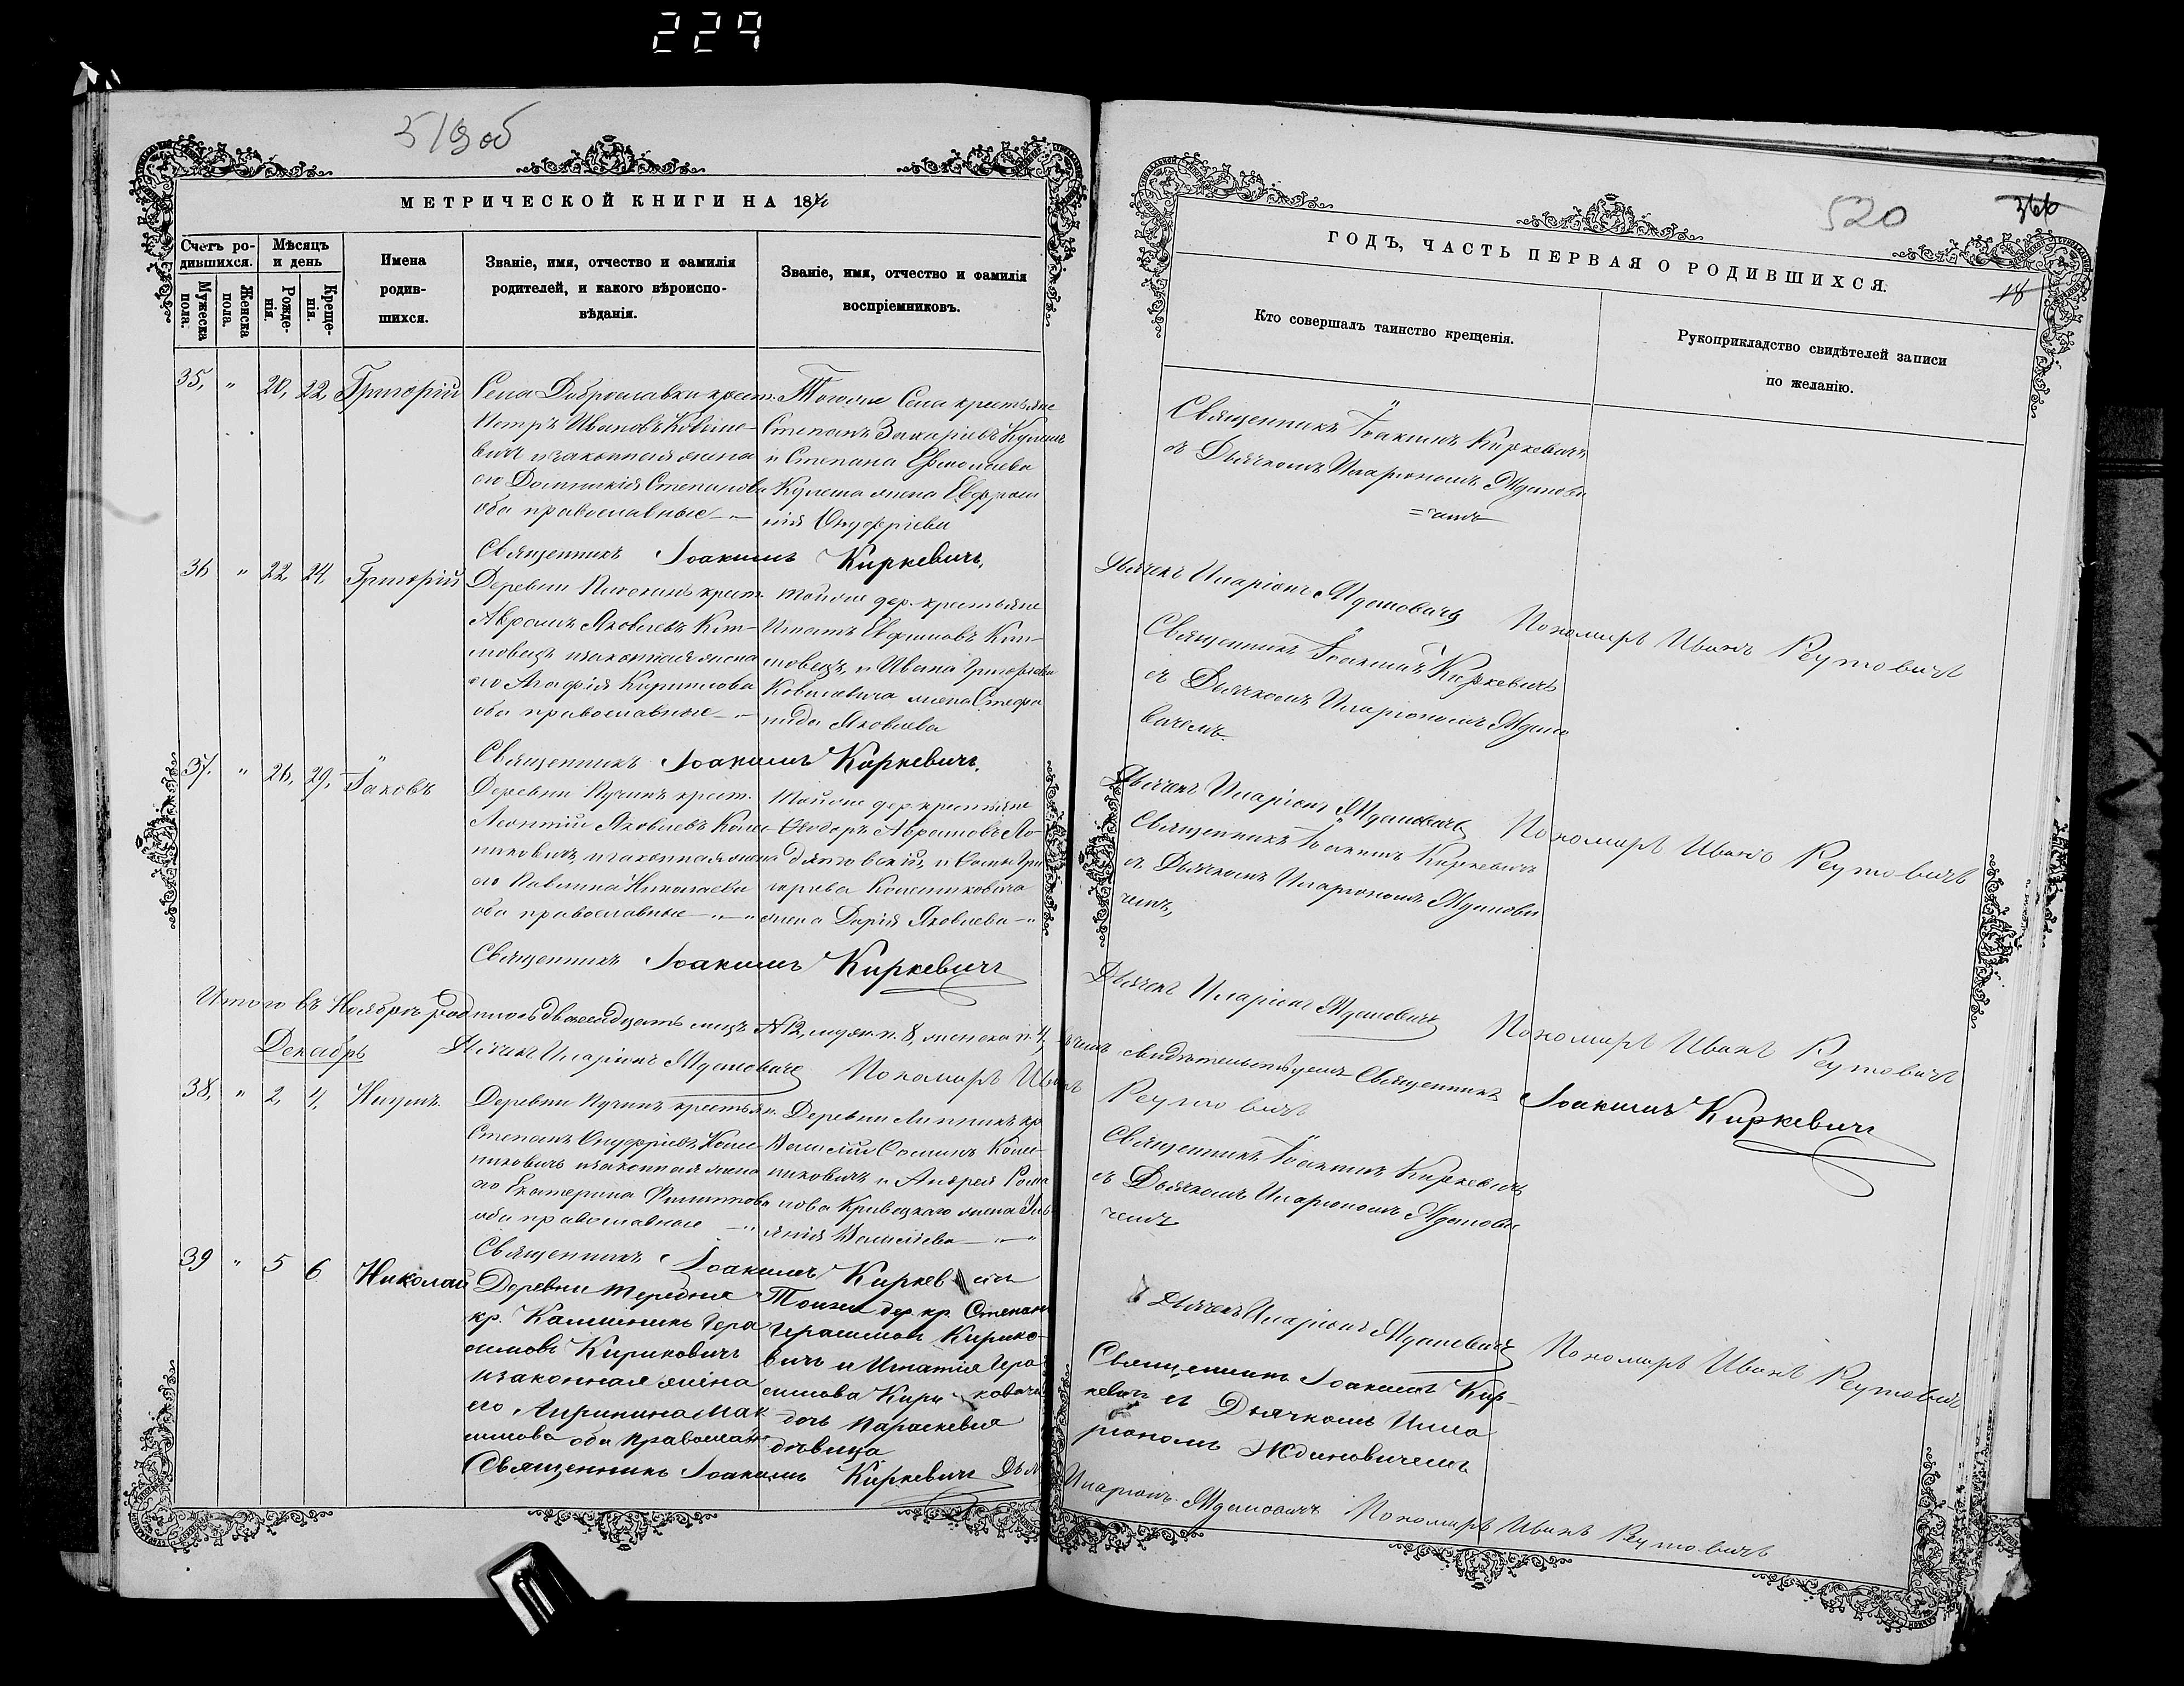 229
519 об
МЕТРИЧЕСКОЙ КНИГИ НА 18
Счетъ ро-
дившихся.
Мѣсяцъ
и день
Мужеска
пола.
Женска
пола.
Рожде-
нія.
Креще-
нія.
Имена
родив-
шихся.
Званіе, имя, отчество и фамилія
родителей, и какого вѣроиспо-
вѣданія.
Званіе, имя, отчество и фамилія
воспріемниковъ.
35, " 20, 22, Григорій
Села Доброславки крест.
Петръ Ивановъ Ковале-
вичъ и законная жена
его Домникія Степанова
оба православные
Тогоже Села крестьяне
Степанъ Захаріевъ
и Степана Ермолаева
Кулеша жена Евфроси
нія Онуфріева
Священникъ Іоакимъ Киркевичъ,
36 " 22, 24, Григорій
Деревни крест.
Аврамъ Яковлевъ Кли-
мовецъ и законная жена
его Агафія Кириллова
оба православные
тойже дер. крестьяне
Игнатъ Евфимовъ Кли-
мовецъ, и Ивана Григорьева
Ковалевича жена Стефа
нида Яковлева
Священникъ Іоакимъ Киркевичъ,
37. " 26, 29, Іаковъ
Деревни Пучинъ крест.
Леонтій Яковлевъ Колес-
никовичъ, и законная жена
его Павлина Николаева
оба православные
Тойже дер. крестьяне
Ѳеодоръ Аврамовъ
и Ѳомы Гри
горьева Колесниковича
жена Дарія Яковлева
Священникъ Іоакимъ Киркевичъ
Итого въ Ноябрѣ родилось двенадцать лицъ №12, муж. п. 8, женска п. 4,
Декабрь
Дьячекъ Иларіонъ Ждановичъ Пономарь Иванъ
38, " 2, 4, Наумъ
Деревни Пучинъ крестьян.
Степанъ Онуфріевъ Колес-
никовичъ и законная жена
его Екатерина Филиппова
оба православные
Деревни кр.
Василій Колес-
никовичъ и Андрея Рома
нова Кривецкаго жена Уль
янія Васильева
Священникъ Іоакимъ Киркевичъ
39 " 5 6 Николай
Деревни
кр. Калиникъ Гера
симовъ Кириковичъ
и законная жена
его Мак
симова оба православн
Тойже дер. кр. Степанъ
Герасимовъ Кирико-
вичъ и Игнатія Гера
симова Кириковича
дочь Параскевія
дѣвица
Священникъ Іоакимъ Киркевичъ
520
366
18
ГОДЪ, ЧАСТЬ ПЕРВАЯ О РОДИВШИХСЯ.
Кто совершалъ таинство крещенія.
Рукоприкладство свидѣтелей записи
по желанію.
Священникъ Іоакимъ Киркевичъ
съ Дьячкомъ Иларіономъ Ждано
= чемъ
Дьячекъ Иларіонъ Ждановичъ Пономарь Иванъ Реутовичъ
Священникъ Іоакимъ Киркевичъ
съ Дьячкомъ Иларіономъ Ждано
вичемъ.
Дьячекъ Иларіонъ Ждановичъ Пономарь Иванъ Реутовичъ
Священникъ Іоакимъ Киркевичъ
съ Дьячкомъ Иларіономъ Жданови
чемъ,
Дьячекъ Иларіонъ Ждановичъ Пономарь Иванъ Реутовичъ
свидѣтельствуемъ Священникъ Іоакимъ Киркевичъ
Реутовичъ
Священникъ Іоакимъ Киркевичъ
съ Дьячкомъ Иларіономъ Жданови
чемъ
Дьячекъ Иларіонъ Ждановичъ Пономарь Иванъ Реутовичъ
Священникъ Іоакимъ Кир-
кевичъ съ Дьячкомъ Илла
ріономъ Ждановичемъ
Иларіонъ Ждановичъ Пономарь Иванъ Реутовичъ